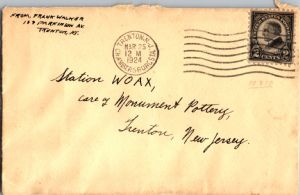 FROM, FRANK WALKER
PARKINSON AV.
TRENTON, NJ.
TRENTON, N.J.
MAR 25
12 M
1924
CHAMBERSBURG STA.
2 CENTS 2
Station WOAX,
care of Monument Pottery,
Trenton, New Jersey.